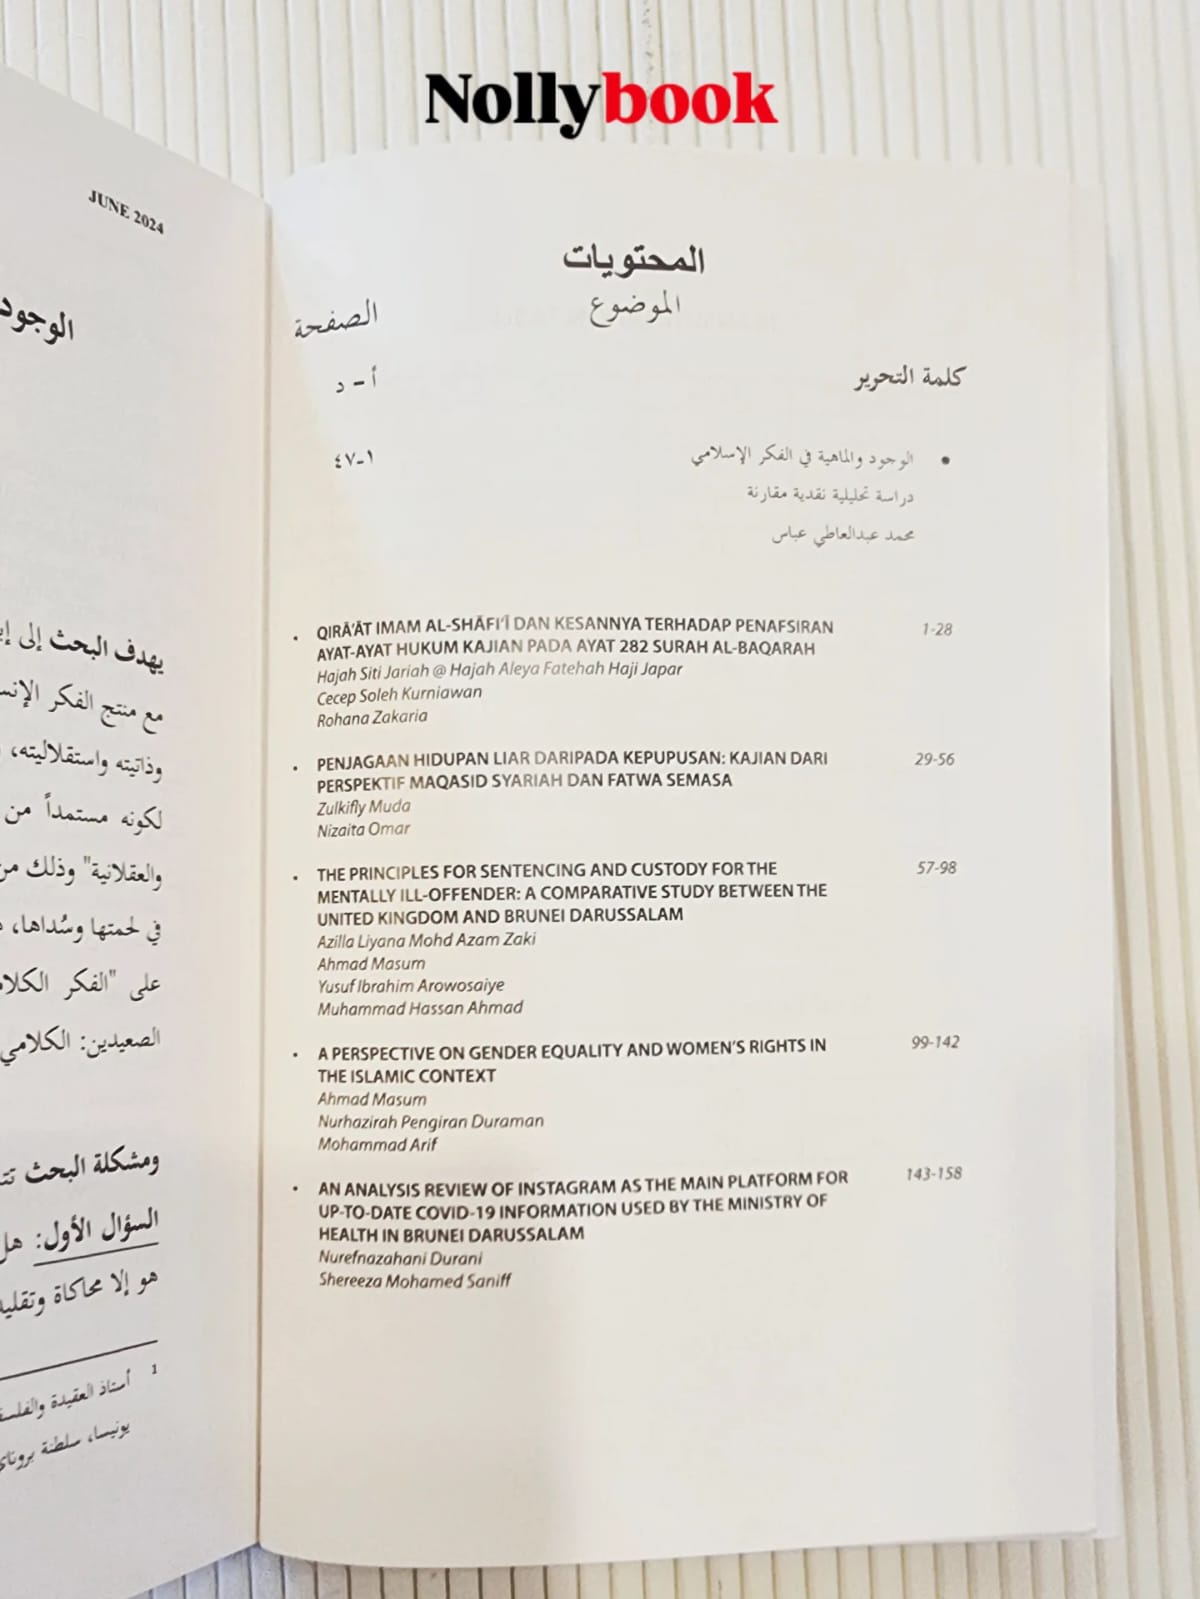 Nollybook
JUNE 2024
الوجود
يهدف البحث إلى
مع منتج الفكر
وذاتيته واستقلاليته،
لكونه مستمداً من
والعقلانية" وذلك
في لحمتها وسُداها،
على "الفكر
الصعيدين: الكلامي
ومشكلة البحث
السؤال الأول: هل
هو إلا محاكاة
1 أستاذ العقيدة
يونيسا، سلطنة
المحتويات
الموضوع
الصفحة
كلمة التحرير
أ - د
• الوجود والماهية في الفكر الإسلامي
١-٤٧
دراسة تحليلية نقدية مقارنة
محمد عبدالعاطي عباس
• QIRĀ'ĀT IMAM AL-SHĀFI'Ī DAN KESANNYA TERHADAP PENAFSIRAN
1-28
AYAT-AYAT HUKUM KAJIAN PADA AYAT 282 SURAH AL-BAQARAH
Hajah Siti Jariah @ Hajah Aleya Fatehah Haji Japar
Cecep Soleh Kurniawan
Rohana Zakaria
• PENJAGAAN HIDUPAN LIAR DARIPADA KEPUPUSAN: KAJIAN DARI
29-56
PERSPEKTIF MAQASID SYARIAH DAN FATWA SEMASA
Zulkifly Muda
Nizaita Omar
• THE PRINCIPLES FOR SENTENCING AND CUSTODY FOR THE
57-98
MENTALLY ILL-OFFENDER: A COMPARATIVE STUDY BETWEEN THE
UNITED KINGDOM AND BRUNEI DARUSSALAM
Azilla Liyana Mohd Azam Zaki
Ahmad Masum
Yusuf Ibrahim Arowosaiye
Muhammad Hassan Ahmad
• A PERSPECTIVE ON GENDER EQUALITY AND WOMEN'S RIGHTS IN
99-142
THE ISLAMIC CONTEXT
Ahmad Masum
Nurhazirah Pengiran Duraman
Mohammad Arif
• AN ANALYSIS REVIEW OF INSTAGRAM AS THE MAIN PLATFORM FOR
143-158
UP-TO-DATE COVID-19 INFORMATION USED BY THE MINISTRY OF
HEALTH IN BRUNEI DARUSSALAM
Nurefnazahani Durani
Shereeza Mohamed Saniff